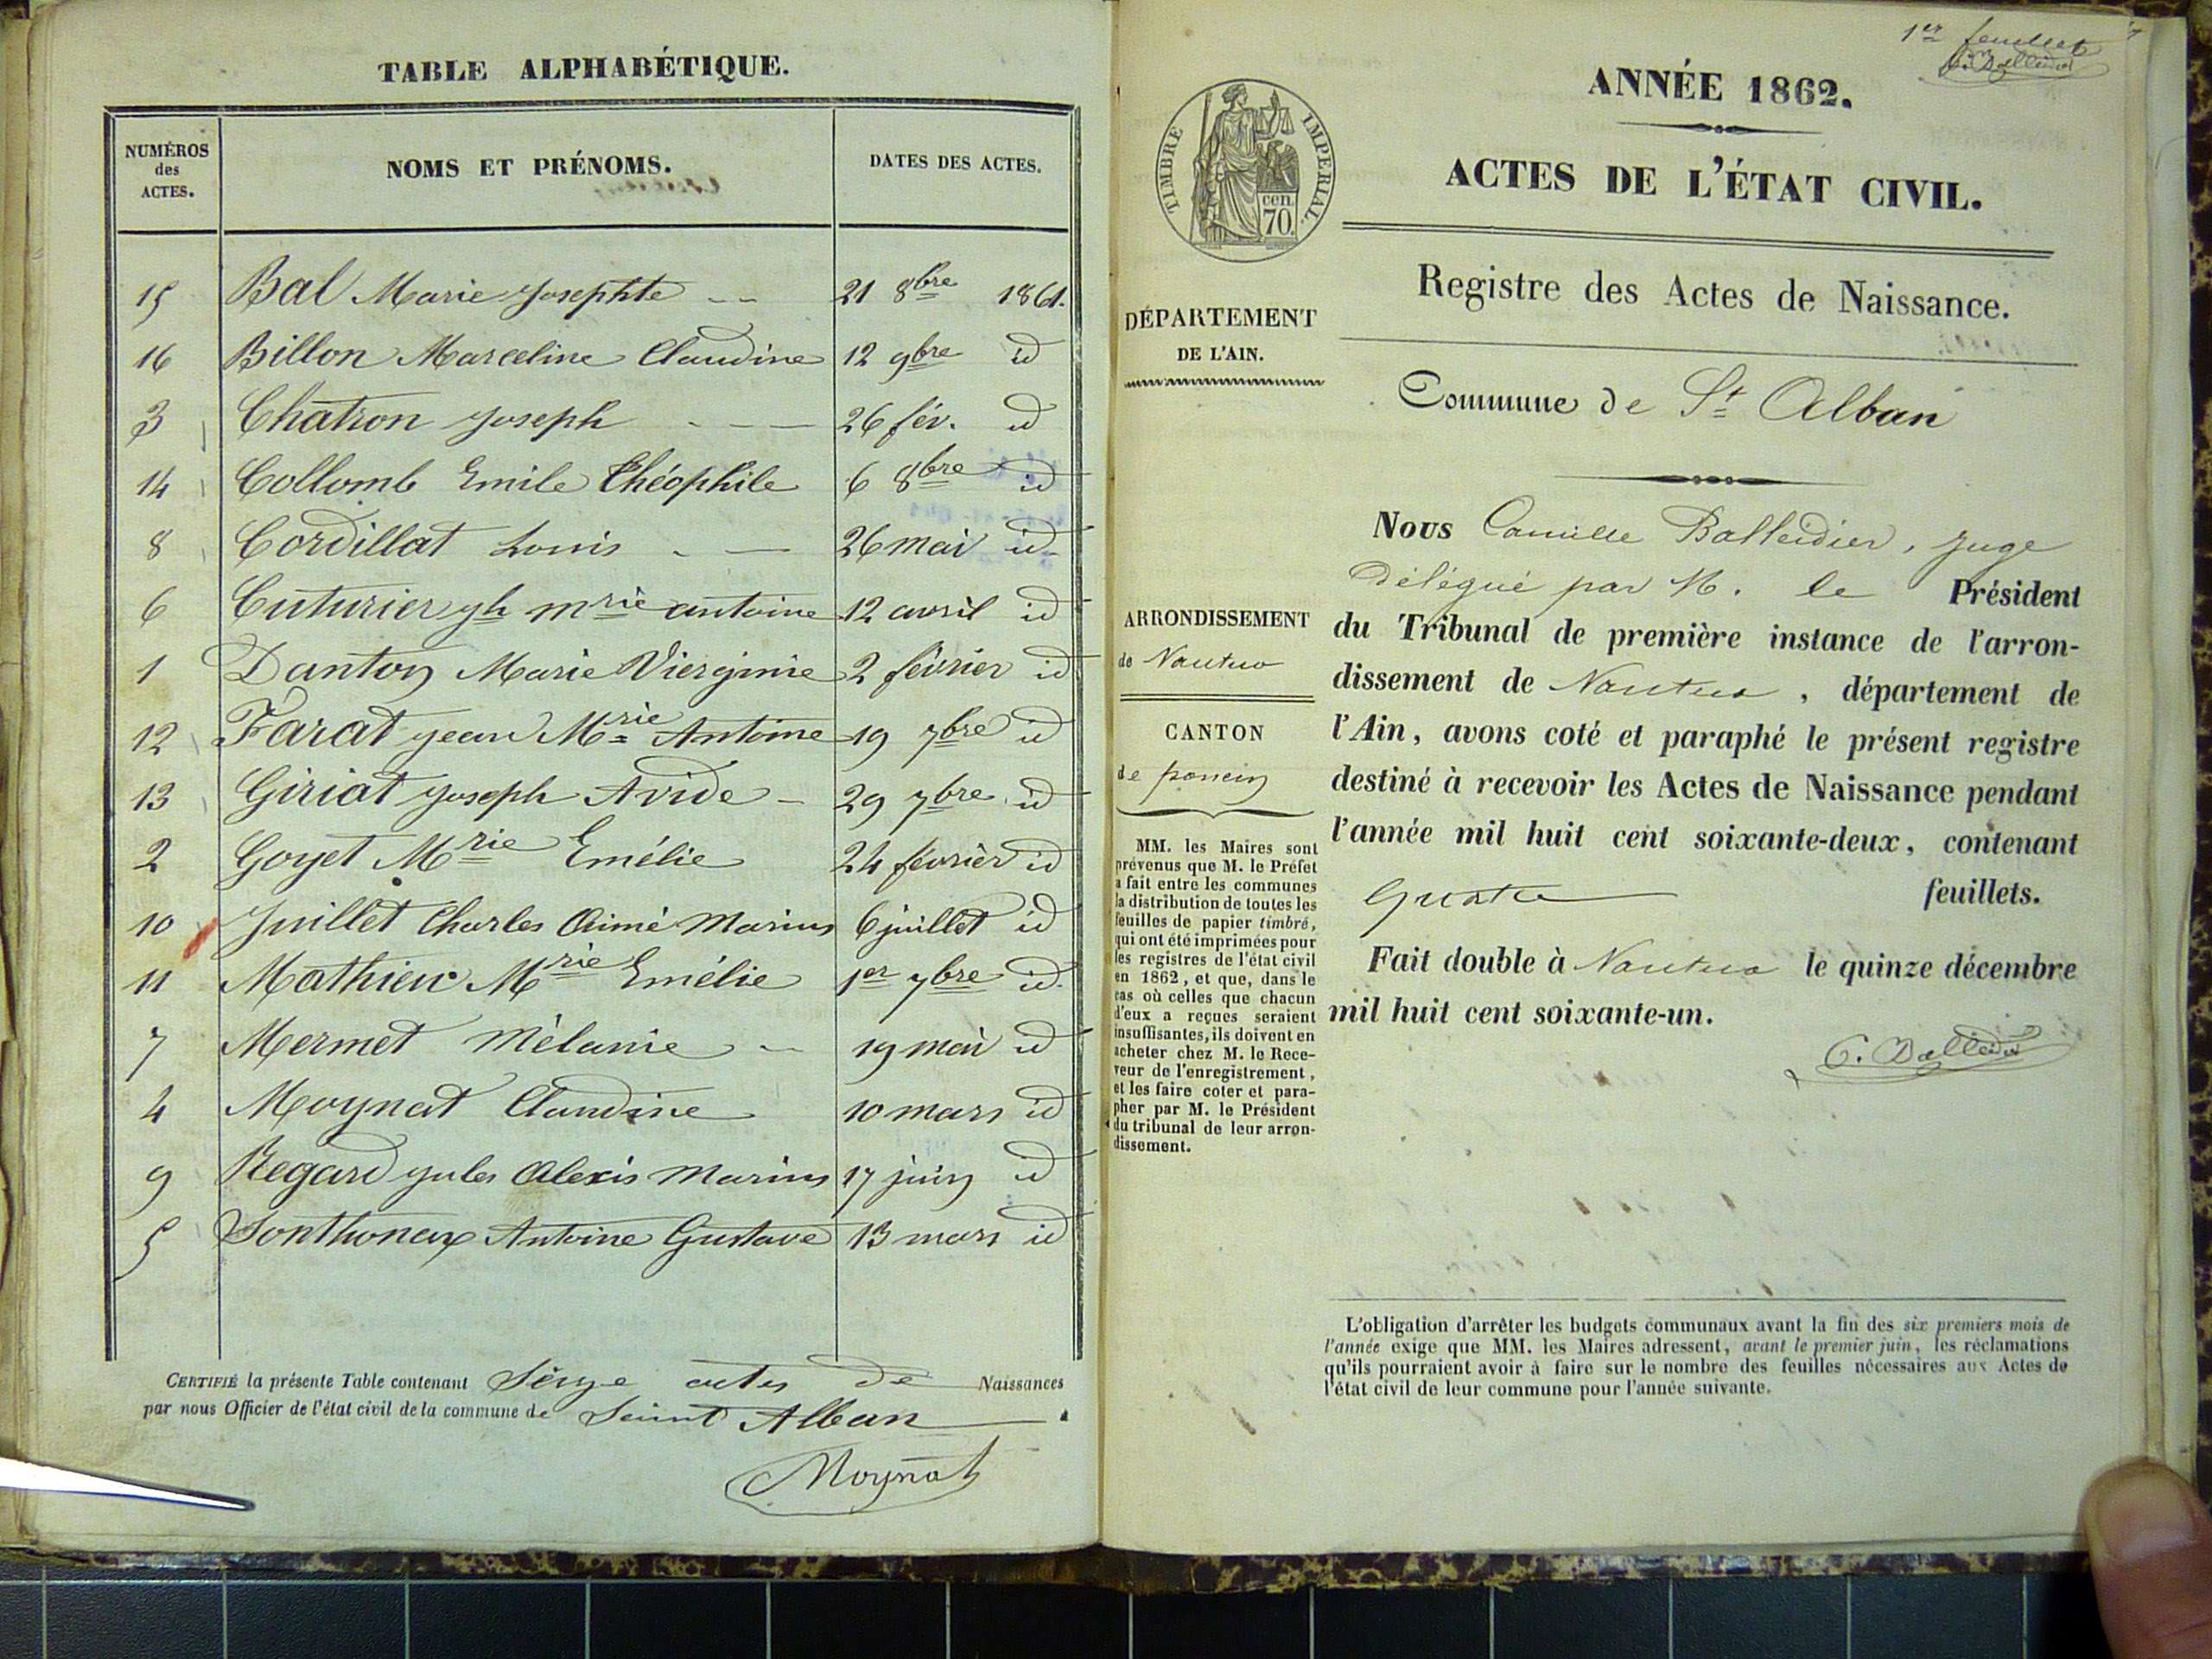 TABLE ALPHABÉTIQUE.
NUMÉROS des ACTES. NOMS ET PRÉNOMS. DATES DES ACTES.
15 Bal Marie Josephte 21 8bre 1861.
16 Billon Marceline Claudine 12 9bre id
3 Chatron Joseph 26 fév. id
14 Collomb Emile Théophile 6 8bre id
8 Cordillat Louis 26 mai id
6 Cuturier Jh Mrie antoine 12 avril id
1 Danton Marie Vierginie 2 février id
12 Farat Jean Mrie Antoine 19 7bre id
13 Giriat Joseph Avide 29 7bre id
2 Goyet Mrie Emélie 24 février id
10 Juillet Charles Aimé Marius 6 juillet id
11 Mathieu Mrie Emélie 1er 7bre id
7 Mermet Mélanie 19 mai id
4 Moynat Claudine 10 mars id
9 Regard Jules Alexis Marius 17 juin id
5 Sonthonax Antoine Gustave 13 mars id
CERTIFIÉ la présente Table contenant Seize actes de Naissances
par nous Officier de l'état civil de la commune de Saint Alban
Moynat
1er feuillet
ANNÉE 1862.
ACTES DE L'ÉTAT CIVIL.
TIMBRE IMPERIAL
cen. 70.
Registre des Actes de Naissance.
DÉPARTEMENT
DE L'AIN.
Commune de St Alban
Nous Camille Balleidier, Juge
délégué par M. le Président
du Tribunal de première instance de l'arron-
dissement de Nantua, département de
l'Ain, avons coté et paraphé le présent registre
destiné à recevoir les Actes de Naissance pendant
l'année mil huit cent soixante-deux, contenant
quatre feuillets.
Fait double à Nantua le quinze décembre
mil huit cent soixante-un.
ARRONDISSEMENT
de Nantua
CANTON
de poncin
MM. les Maires sont
prévenus que M. le Préfet
a fait entre les communes
la distribution de toutes les
feuilles de papier timbré,
qui ont été imprimées pour
les registres de l'état civil
en 1862, et que, dans le
cas où celles que chacun
d'eux a reçues seraient
insuffisantes, ils doivent en
acheter chez M. le Rece-
veur de l'enregistrement,
et les faire coter et para-
pher par M. le Président
du tribunal de leur arron-
dissement.
L'obligation d'arrêter les budgets communaux avant la fin des six premiers mois de
l'année exige que MM. les Maires adressent, avant le premier juin, les réclamations
qu'ils pourraient avoir à faire sur le nombre des feuilles nécessaires aux Actes de
l'état civil de leur commune pour l'année suivante.